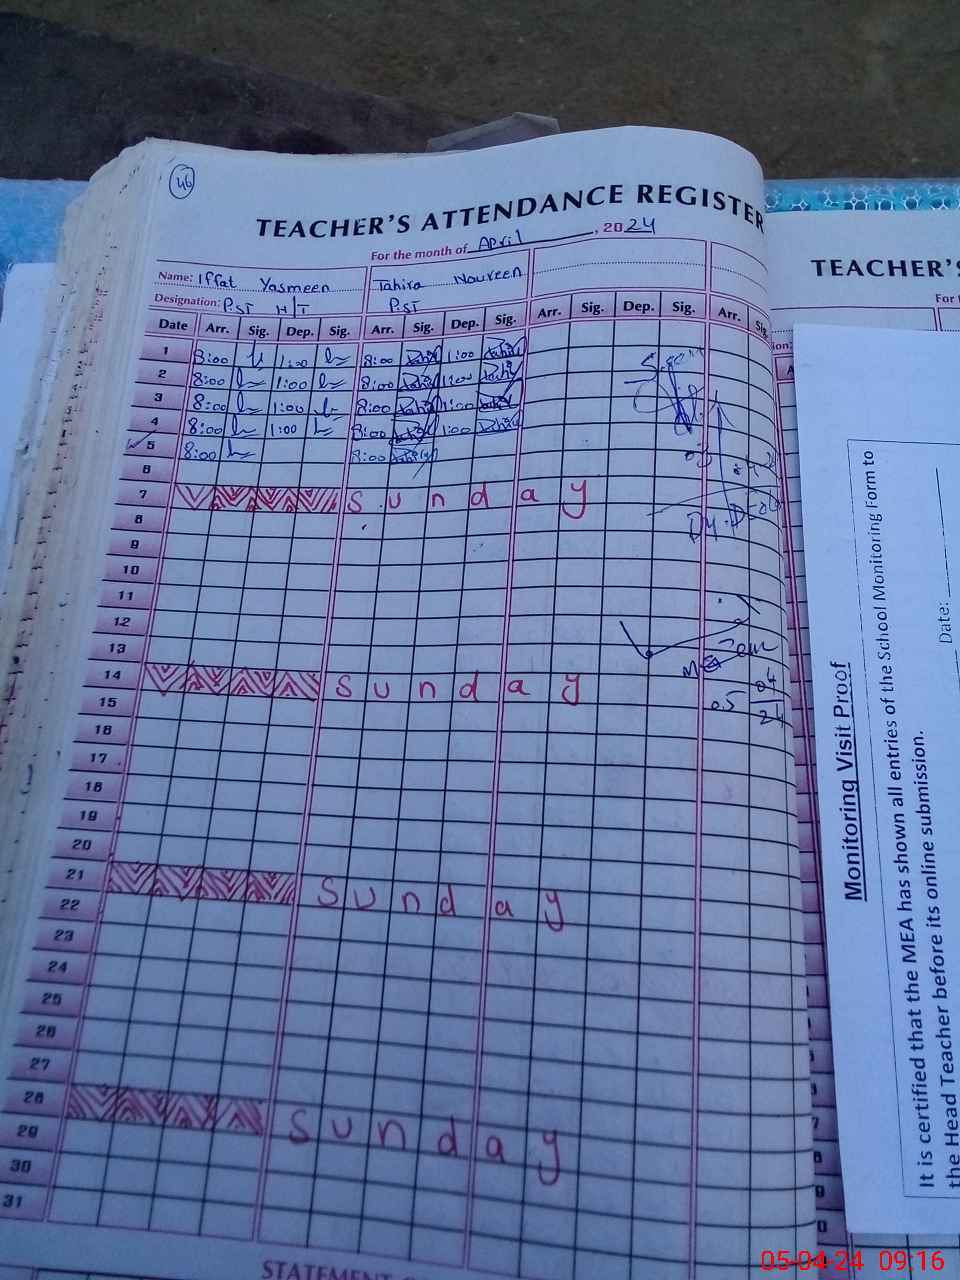 46
TEACHER'S ATTENDANCE REGISTER
For the month of April, 2024
Name: Iffat Yasmeen Tahira Noureen
Designation: P.ST H/T P.ST
Date Arr. Sig. Dep. Sig. Arr. Sig. Dep. Sig. Arr. Sig. Dep. Sig. Arr. Sig.
1 8:00 1:00 8:00 1:00
2 8:00 1:00 8:00 1:00
3 8:00 1:00 8:00 1:00
4 8:00 1:00 8:00 1:00
5 8:00 8:00
6
7 Sunday
8
9
10
11
12
13
14 Sunday
15
16
17
18
19
20
21 Sunday
22
23
24
25
26
27
28 Sunday
29
30
31
MEA
05 04 24
STATEMENT
TEACHER'S
For t
Monitoring Visit Proof
It is certified that the MEA has shown all entries of the School Monitoring Form to
the Head Teacher before its online submission.
Date:
05-04-24 09:16